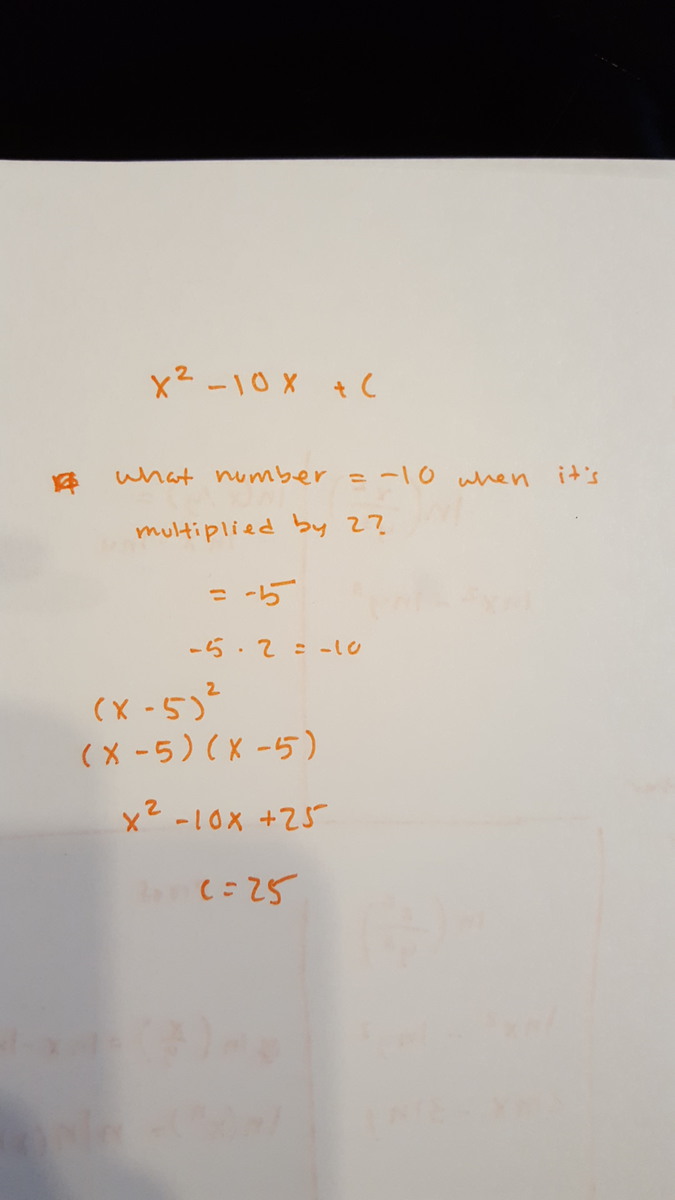 x² -10x + C
what number = -10 when it's
multiplied by 2?
= -5
-5 · 2 = -10
(x -5)²
(x -5)(x -5)
x² -10x +25
C = 25